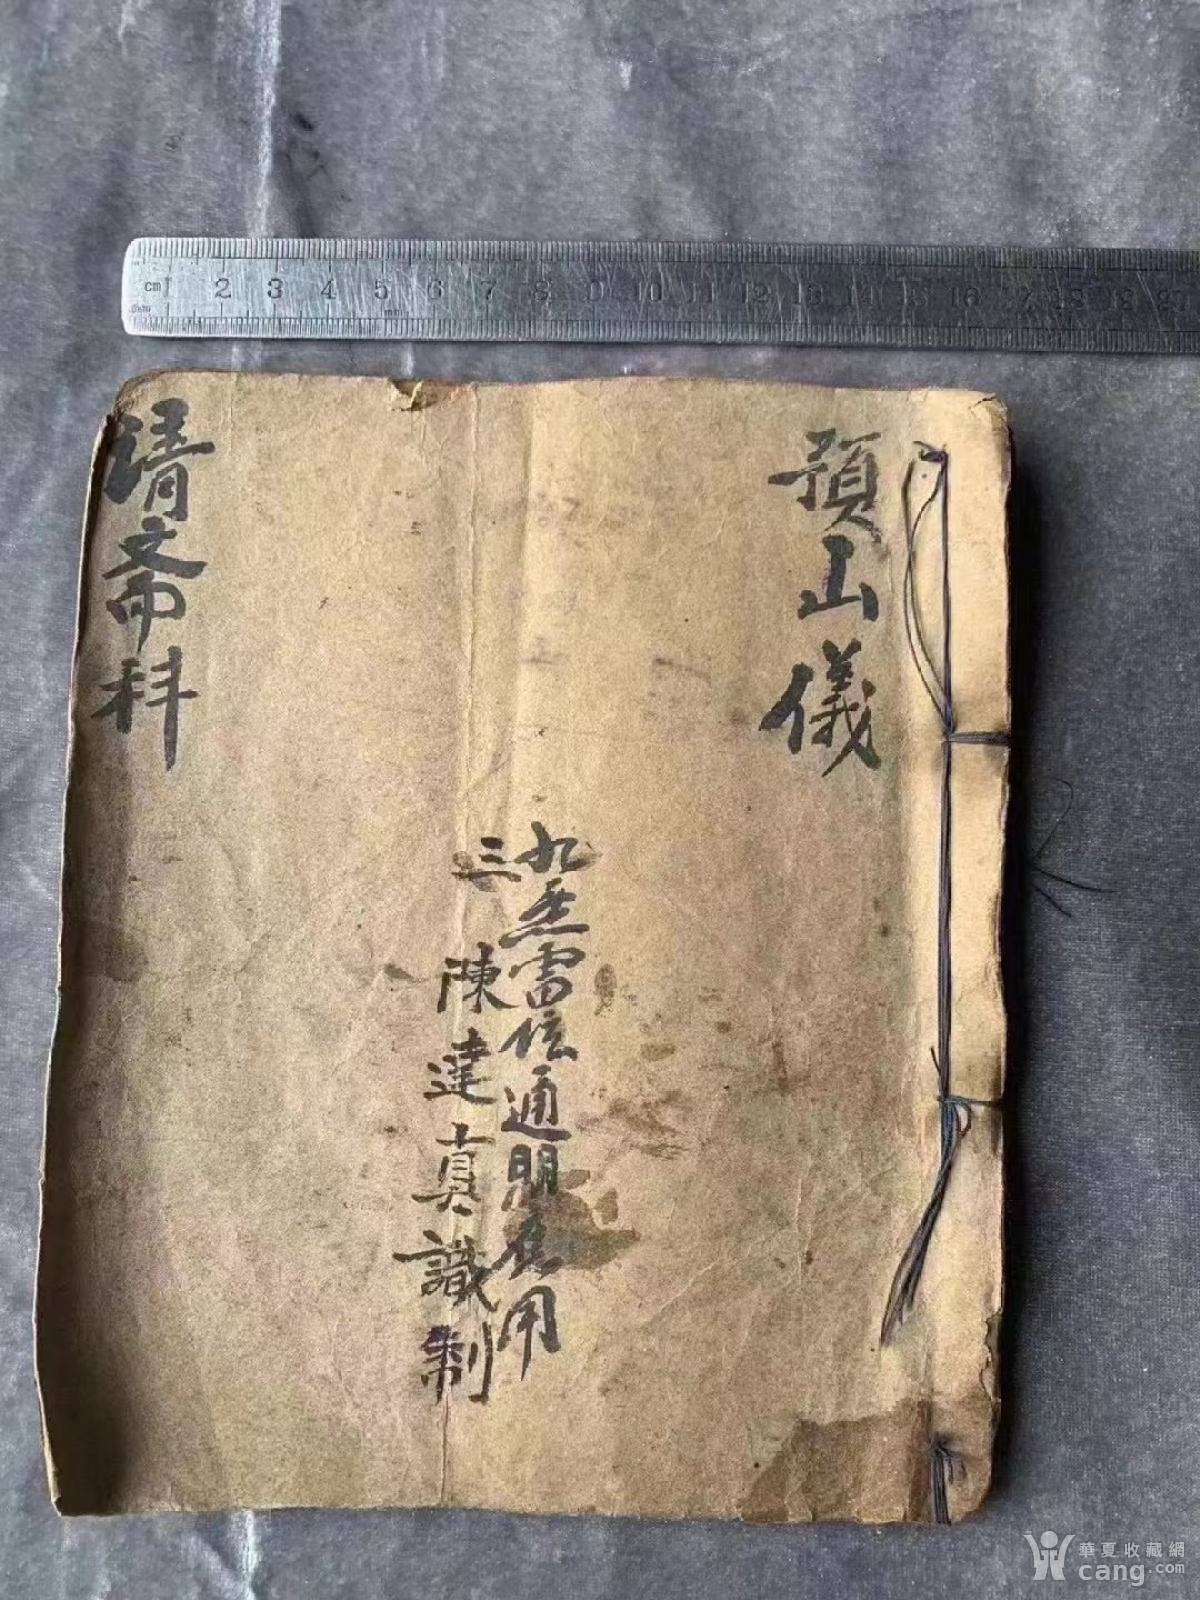 cm 2 3 4 5 6 7 8 9 10 11 12 13 14 16 17 18 19 20
mm
預山儀
九炁雷通明用
三陳達真識制
清斋科
華夏收藏網
cang.com